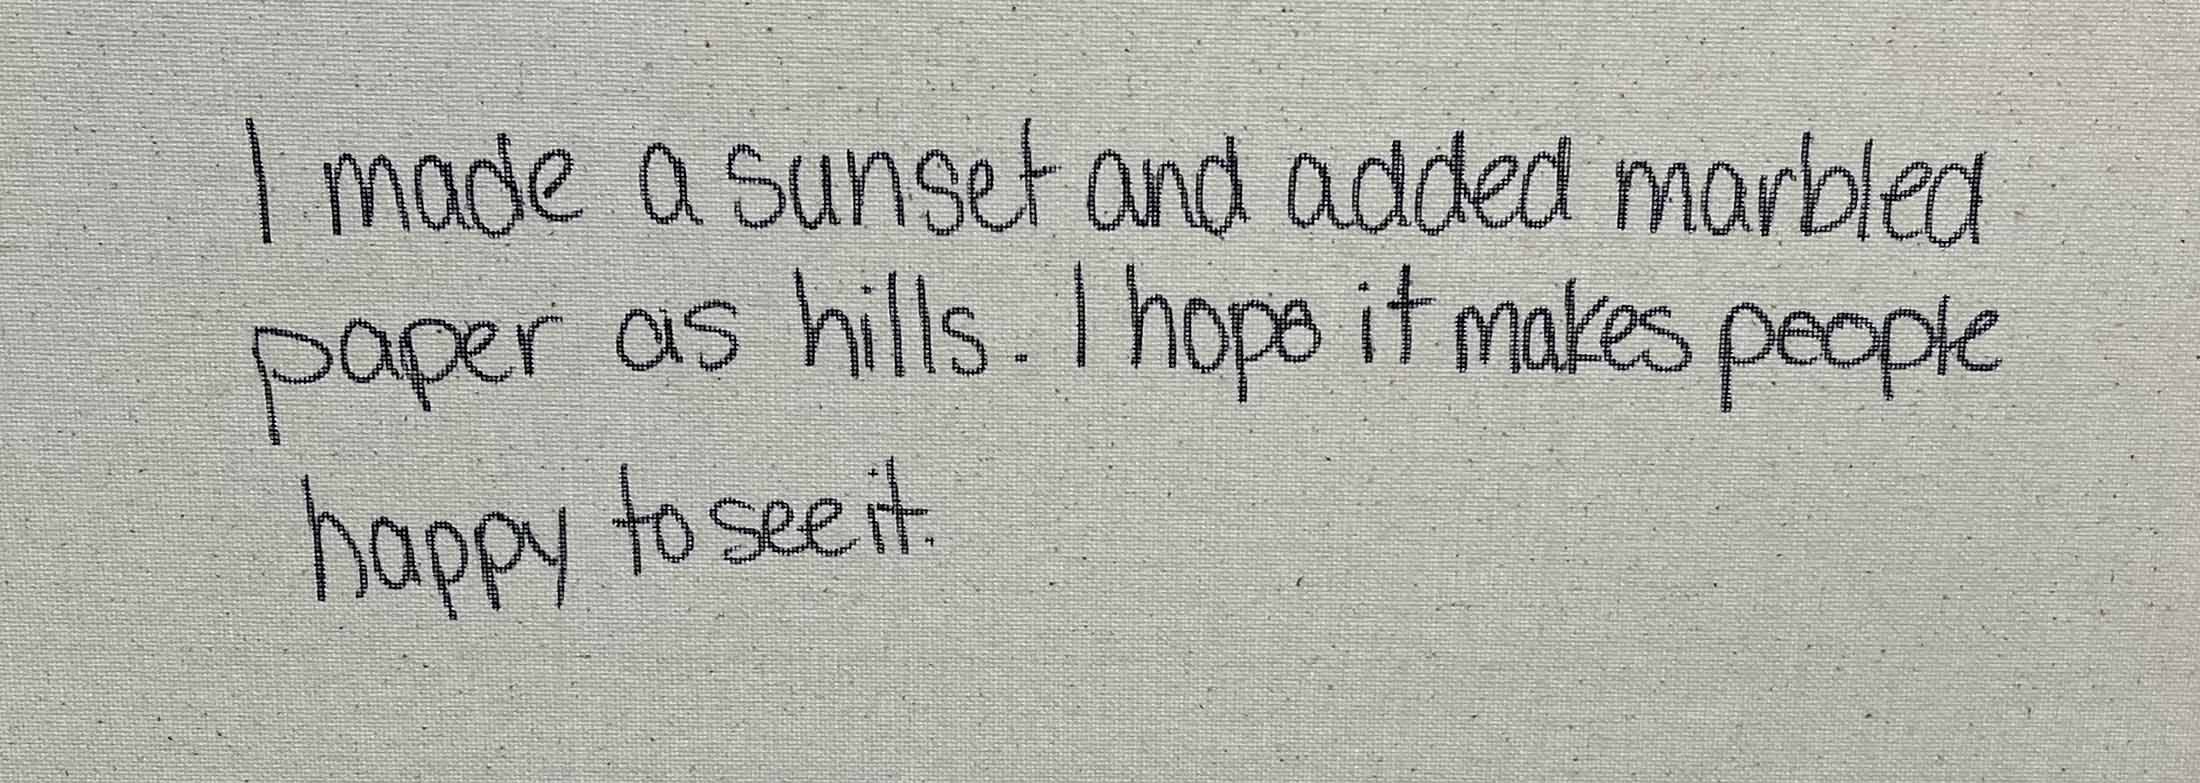 I made a sunset and added marbled
paper as hills. I hope it makes people
happy to see it.